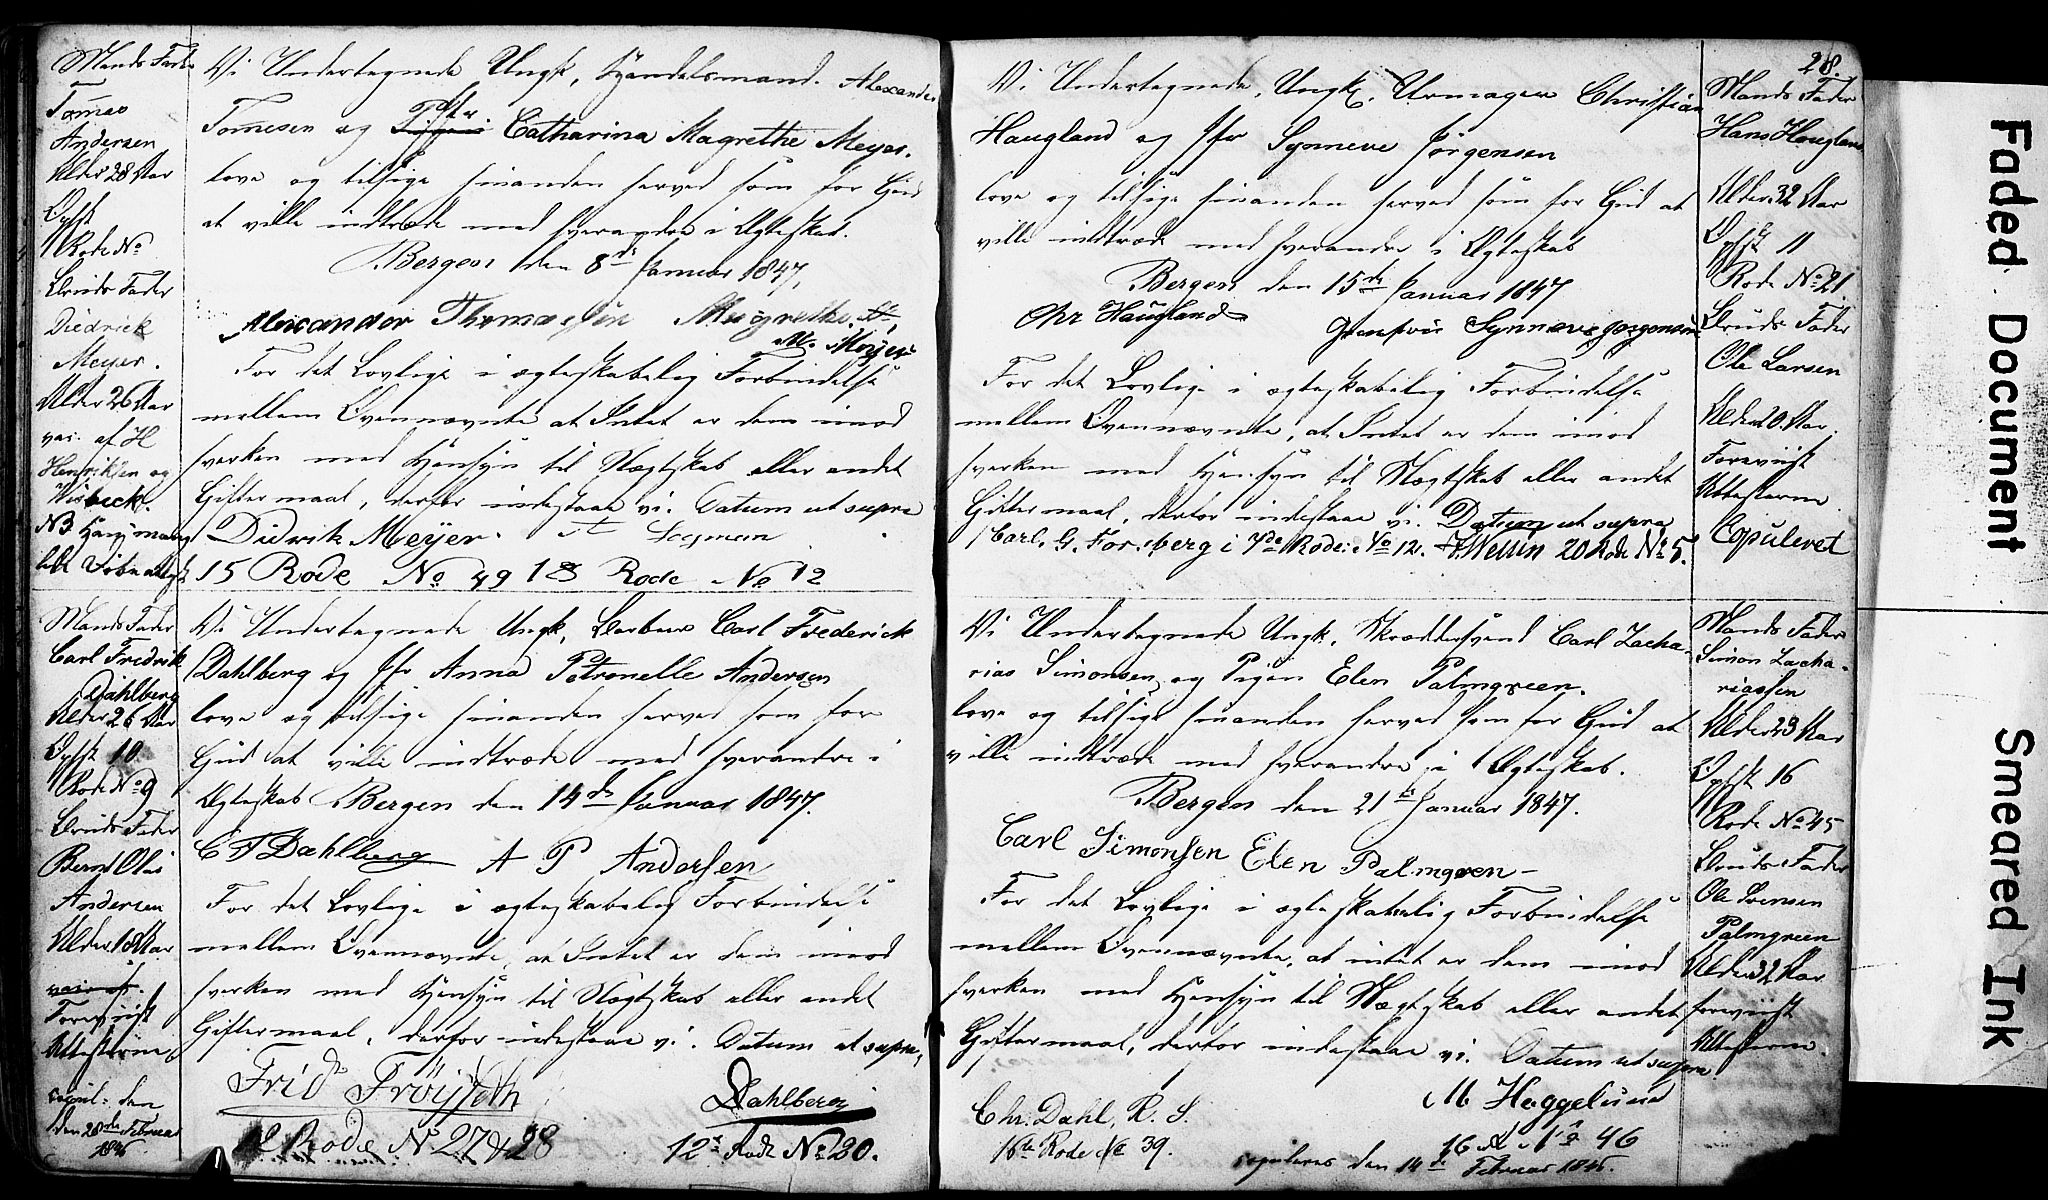 Mands Fader
Tomas
Andersen
Alder 28 Aar
Opfst
Rode No
Bruds Fader
Diedrick
Meyer.
Alder 26 Aar
vac. af H
Henriksen og
Wisbeck.
NB
Vi Undertegnede Ungk, Handelsmand. Alexander
Tomesen og Catharina Magrethe Meyer.
love og tilsige hinanden herved som for Gud
at ville indtræde med hverandre i Ægteskab.
Bergen den 8de Januar 1847,
Alexander Thomassen Magrethe
M. Meyer
For det Lovlige i ægteskabelig Forbindelse
mellem Ovennævnte at Intet er dem imod
hverken med Hensyn til Slægtskab eller andet
Giftermaal, derfor indestaae vi. Datum ut supra
Didrik Meyer.
15 Rode No 49 18 Rode No 12
Mands Fader
Carl Fredrik
Dahlberg
Alder 26 Aar
Opfst 10
Rode No 9
Bruds Fader
Bernt Olai
Andersen
Alder 18 Aar
Forevist
Attesterne
copul: den
den 28de Februar
Vi Undertegnede Ungk, Barbeer Carl Frederick
Dahlberg og Jfr Anna Petronelle Andersen
love og tilsige hinanden herved som for
Gud at ville indtræde med hverandre i
Ægteskab Bergen den 14de Januar 1847.
C F Dahlberg A P Andersen
For det Lovlige i ægteskabelig Forbindelse
mellem Ovennævnte, at Intet er dem imod
hverken med Hensyn til Slægtskab eller andet
Giftermaal, derfor indestaae vi. Datum ut supra,
Frid Dahlberg
Rode No 27 & 28 12te Rode No 20.
28.
Vi Undertegnede, Ungk. Urmager Christian
Haugland og Jfr Synneve Jørgensen
love og tilsige hinanden herved som for Gud at
ville indtræde med hverandre i Ægteskab
Bergen den 15de Januar 1847
Chr Haugland Synneve Jørgensen
For det Lovlige i ægteskabelig Forbindelse
mellem Ovennævnte, at Intet er dem imod
hverken med Hensyn til Slægtskab eller andet
Giftermaal, derfor indestaae vi. Datum ut supra
Carl. G. Forsberg i 7de Rode No 12. 20 Rode No 5.
Mands Fader
Hans Haugland
Alder 32 Aar
Opfst 11
Rode No 21
Bruds Fader
Ole Larsen
Alder 20 Aar.
Forevist
Attesterne
Copuleret
Vi Undertegnede Ungk. Skræddersvend Carl Zacha-
rias Simonsen og Pigen Elen Palmgreen.
love og tilsige hinanden herved som for Gud at
ville indtræde med hverandre i Ægteskab.
Bergen den 21de Januar 1847.
Carl Simonsen Elen Palmgren
For det Lovlige i ægteskabelig Forbindelse
mellem Ovennævnte, at intet er dem imod
hverken med Hensyn til Slægtskab eller andet
Giftermaal, derfor indestaae vi. Datum ut supra
M Heggelund
Chr. Dahl, R. S.
16de Rode No 39. 16 R No 46
copuleret den 14de Februar
Mands Fader
Simon Zacha-
riassen
Alder 23 Aar
Opfst 16
Rode No 45
Bruds Fader
Ole Svensen
Palmgreen
Alder 32 Aar
forevist
Attesterne.
Faded Document
Smeared Ink